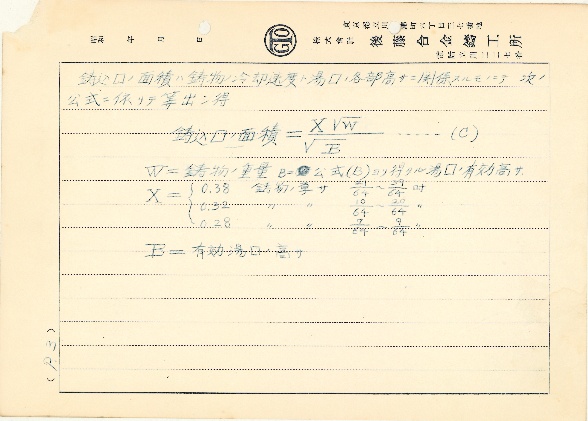 昭和 年 月 日
GTO
株式会社 後藤合金鋳工所
鋳込口ノ面積ハ鋳物ノ冷却速度ト湯口ノ各部高サニ関係スルモノニテ 次ノ
公式ニ依リテ算出シ得
鋳込口ノ面積 = X√W / √B ...... (C)
W = 鋳物ノ重量 B = 公式(B)ヨリ得タル湯口ノ有効高サ
X = { 0.38 鋳物ノ厚サ 21/64 ~ 29/64 吋
0.32 〃 〃 10/64 ~ 20/64 〃
0.28 〃 〃 7/64 ~ 9/64 〃
B = 有効湯口ノ高サ
(P.3)